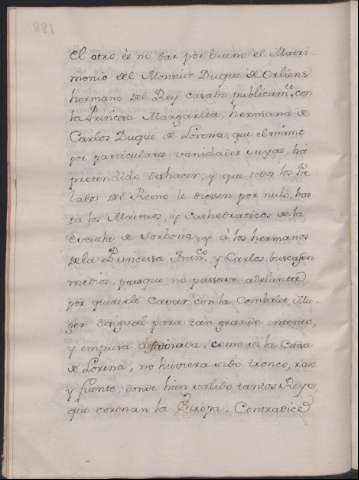 881
El otro es no dar por bueno el Matri-
monio del Monsiur Duque de Orliens
hermano del Rey casado publicam.te con
la Princesa Margarita, hermana de
Carlos Duque de Lorena, que el mismo
por particulares vanidades suyas, ha
pretendido deshacer, y que todos los Pre
lados del Reino le diesen por nulo, has
ta los Maestros, y Cathedraticos de la
Escuela de Sorbona, y á los hermanos
de la Princesa Fran.co y Carlos buscasen
medios, para que no passase adelante
por quererle casar con la Combalet Mu-
ger desigual para tan grande
y empresa como si la Casa
de Lorena, no huviera sido tronco, raiz
y fuente, donde han salido tantos Reyes
que coronan la Europa. Contradice